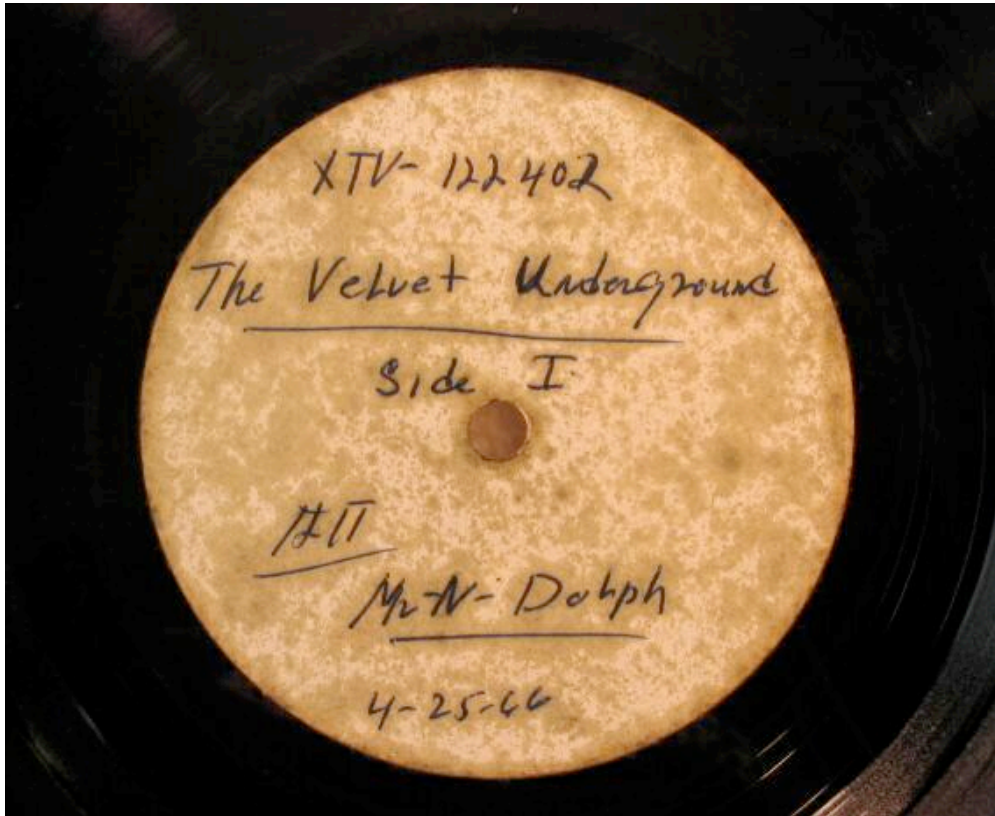 XTV- 122402
The Velvet Underground
Side I
Mr-N- Dolph
4-25-66